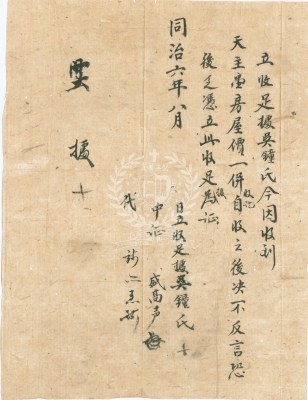 立收足據吳鍾氏今因收到
天主堂房屋價一併收訖自收之後決不反言恐
後無憑立此收足據為證
同治六年八月
日立收足據吳鍾氏 十
中证 戚高声
代
聖據 十